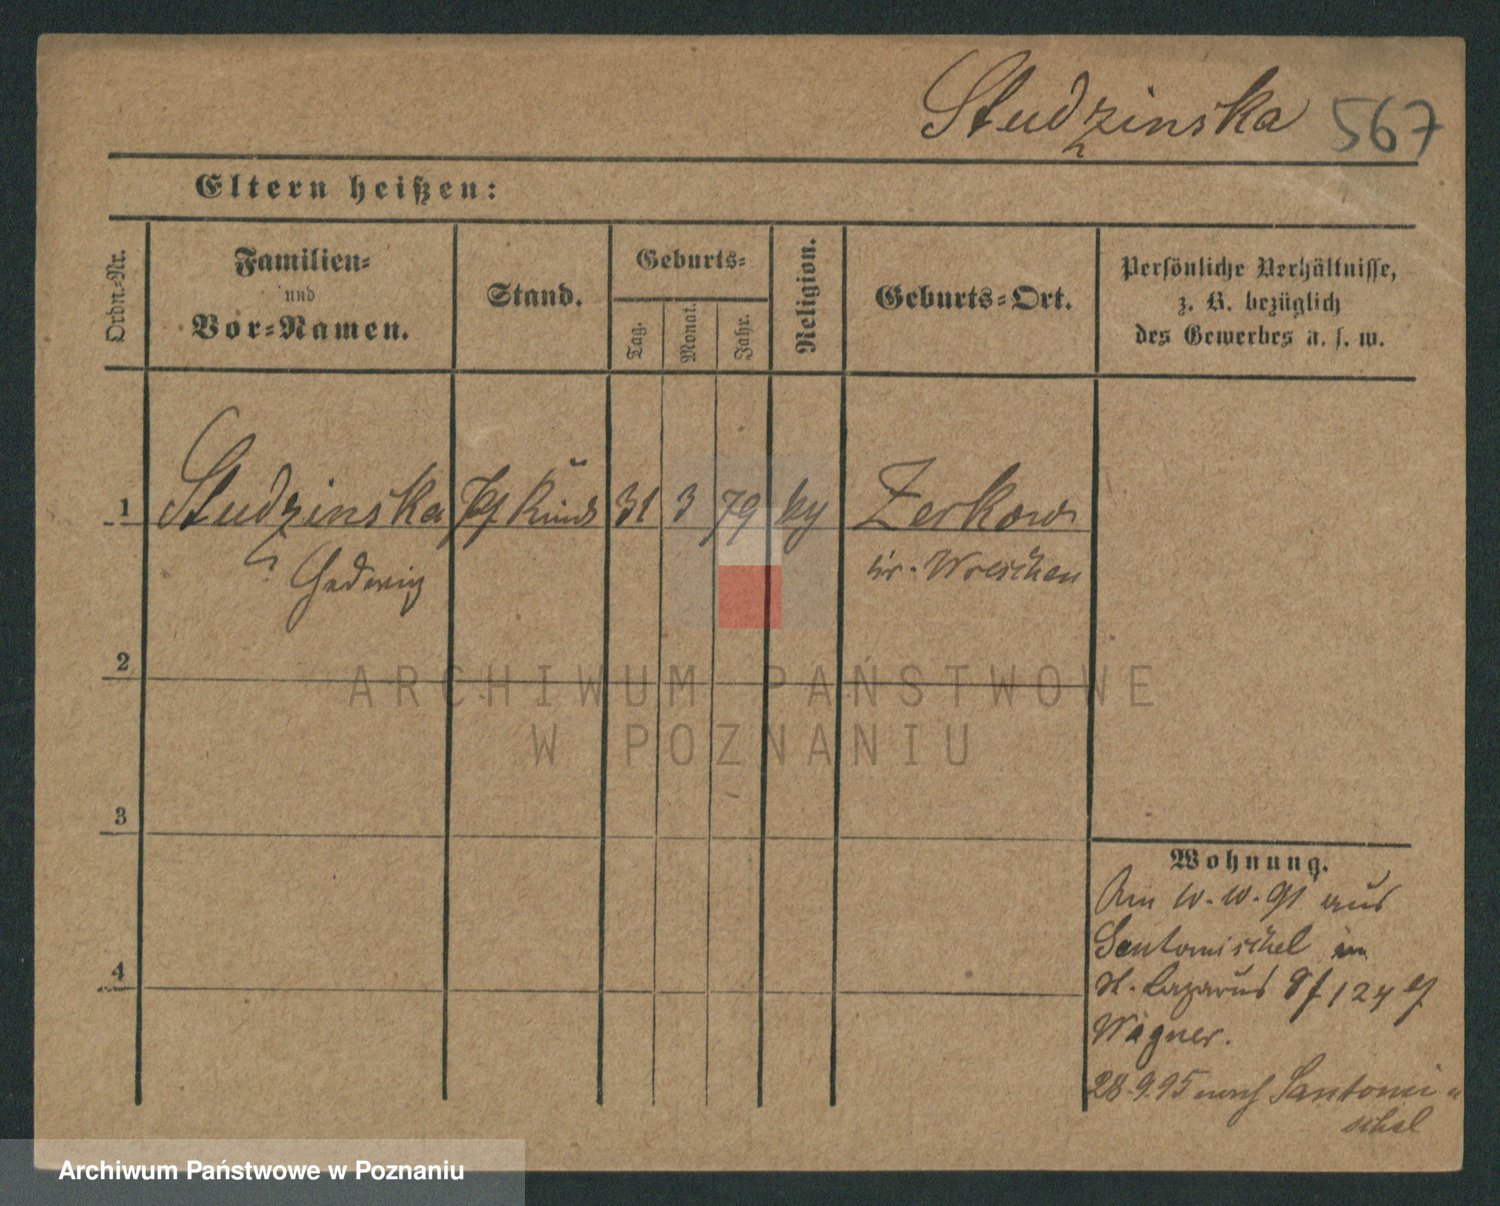 Studzinska 567
Eltern heißen:
Ordn.-Nr.
Familien-
und
Vor-Namen.
Stand.
Geburts-
Tag.
Monat.
Jahr.
Religion.
Geburts-Ort.
Persönliche Verhältnisse,
z. B. bezüglich
des Gewerbes u. s. w.
1 Studzinska 31 3 79 Zerkow
Hedwig Kr. Wreschen
2
ARCHIWUM PAŃSTWOWE
W POZNANIU
3
Wohnung.
Am 10.10.91 aus
Santomischel in
St. Lazarus 124
Wagner.
28.9.95 nach Santomi-
schel
4
Archiwum Państwowe w Poznaniu